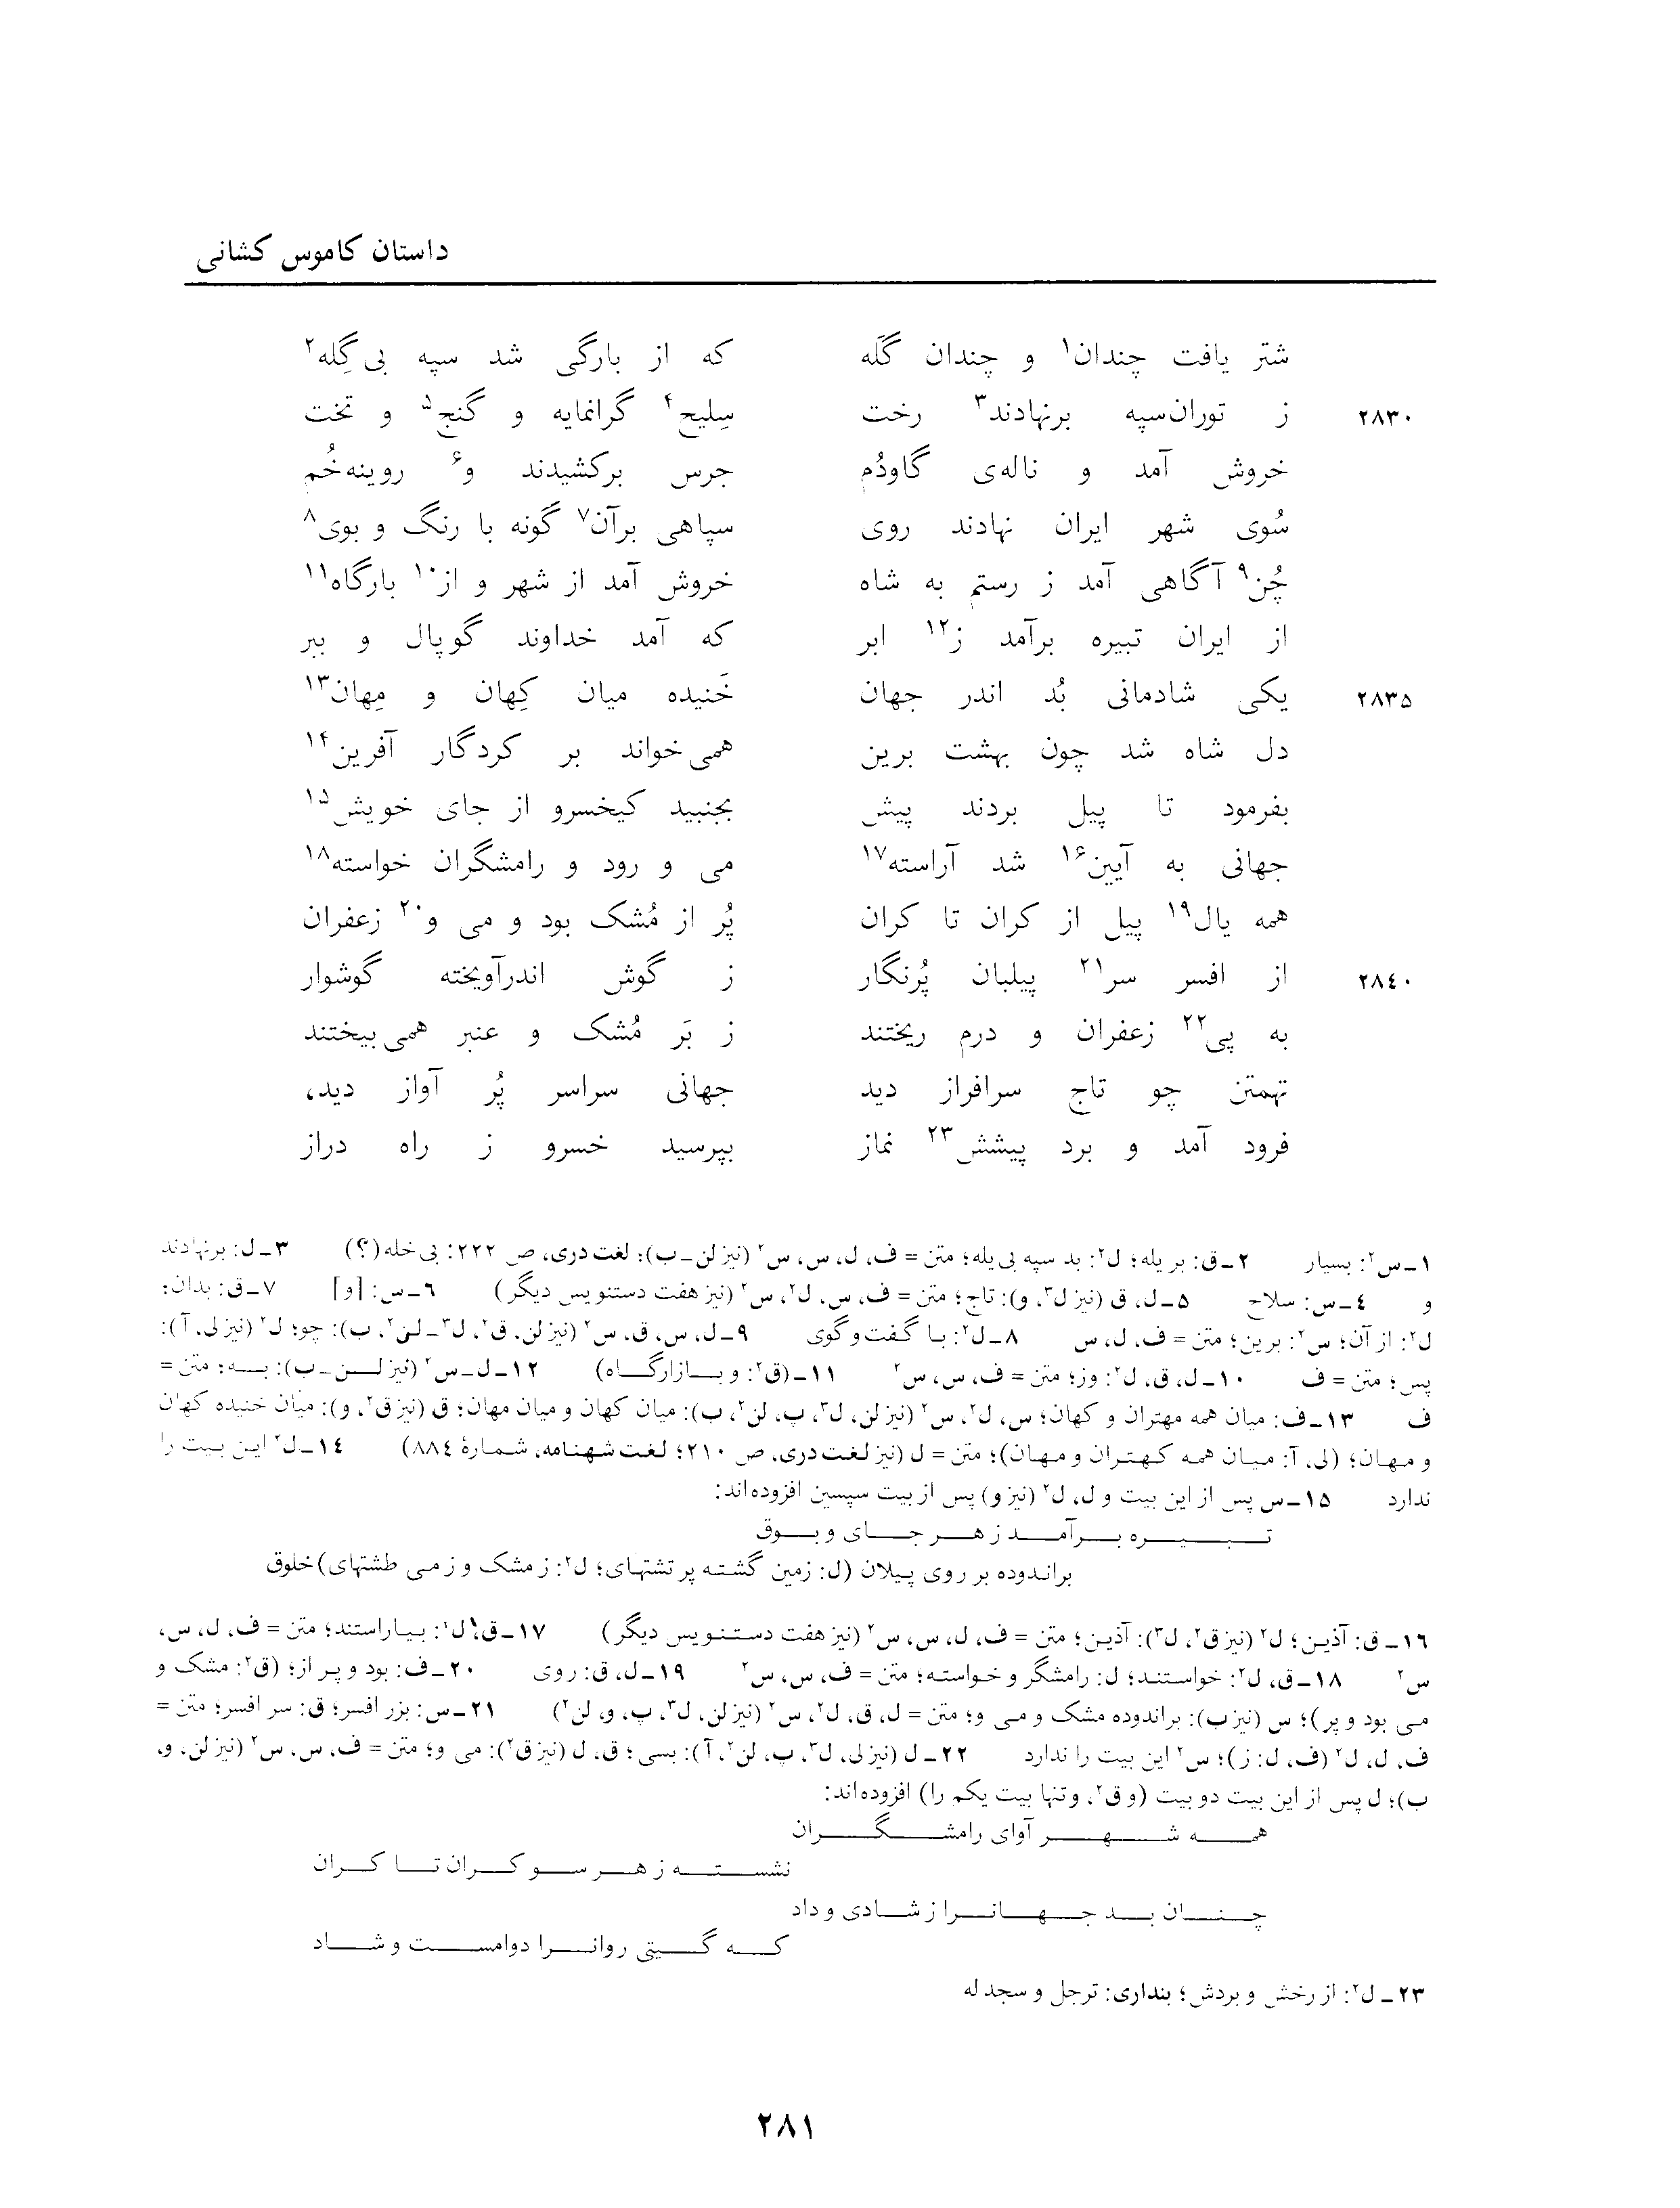 داستان کاموس کشانی
شتر یافت چندان۱ و چندان گَله که از بارگی شد سپه بی گِله۲
۲۸۳۰ ز توران‌سپه برنهادند۳ رخت سِلیح۴ گرانمایه و گنج۵ و تخت
خروش آمد و ناله‌ی گاودُم جرس برکشیدند و۶ روینه‌خُم
سُوی شهر ایران نهادند روی سپاهی برآن۷ گونه با رنگ و بوی۸
چُن۹ آگاهی آمد ز رستم به شاه خروش آمد از شهر و از۱۰ بارگاه۱۱
از ایران تبیره برآمد ز۱۲ ابر که آمد خداوند گوپال و ببر
۲۸۳۵ یکی شادمانی بُد اندر جهان خَنیده میان کِهان و مِهان۱۳
دل شاه شد چون بهشت برین همی خواند بر کردگار آفرین۱۴
بفرمود تا پیل بردند پیش بجنبید کیخسرو از جای خویش۱۵
جهانی به آیین۱۶ شد آراسته۱۷ می و رود و رامشگران خواسته۱۸
همه یال۱۹ پیل از کران تا کران پُر از مُشک بود و می و۲۰ زعفران
۲۸۴۰ از افسر سر۲۱ پیلبان پُرنگار ز گوش اندرآویخته گوشوار
به پی۲۲ زعفران و درم ریختند ز بَر مُشک و عنبر همی بیختند
تهمتن چو تاج سرافراز دید جهانی سراسر پُر آواز دید،
فرود آمد و برد پیشش۲۳ نماز بپرسید خسرو ز راه دراز
۱ـ س۲: بسیار ۲ـ ق: بر یله؛ ل۲: بد سپه بی یله؛ متن = ف، ل، س، س۲ (نیز لن ـ ب)؛ لغت دری، ص ۲۲۲: بی خله (؟) ۳ـ ل: برنهادند
و ۴ـ س: سلاح ۵ـ ل، ق (نیز ل۳، و): تاج؛ متن = ف، س، ل۲، س۲ (نیز هفت دستنویس دیگر) ۶ـ س: [و] ۷ـ ق: بدان؛
ل۲: از آن؛ س۲: برین؛ متن = ف، ل، س ۸ـ ل۲: با گفت‌وگوی ۹ـ ل، س، ق، س۲ (نیز لن، ق۲، ل۳ ـ لن۲، ب): چو؛ ل۲ (نیز لی، آ):
پس؛ متن = ف ۱۰ـ ل، ق، ل۲: وز؛ متن = ف، س، س۲ ۱۱ـ (ق۲: و بازارگاه) ۱۲ـ ل ـ س۲ (نیز لن ـ ب): به؛ متن =
ف ۱۳ـ ف: میان همه مهتران و کهان؛ س، ل۲، س۲ (نیز لن، ل۳، پ، لن۲، ب): میان کهان و میان مهان؛ ق (نیز ق۲، و): میان خنیده کهان
و مهان؛ (لی، آ: میان همه کهتران و مهان)؛ متن = ل (نیز لغت دری، ص ۲۱۰؛ لغت شهنامه، شمارهٔ ۸۸۴) ۱۴ـ ل۲ این بیت را
ندارد ۱۵ـ س پس از این بیت و ل، ل۲ (نیز و) پس از بیت سپسین افزوده‌اند:
تبیره برآمد ز هر جای و بوق
براندوده بر روی پیلان (ل: زمین گشته پر تشتهای؛ ل۲: ز مشک و ز می طشتهای) خلوق
۱۶ـ ق: آذین؛ ل۲ (نیز ق۲، ل۳): آذین؛ متن = ف، ل، س، س۲ (نیز هفت دستنویس دیگر) ۱۷ـ ق، ل۲: بیاراستند؛ متن = ف، ل، س،
س۲ ۱۸ـ ق، ل۲: خواستند؛ ل: رامشگر و خواسته؛ متن = ف، س، س۲ ۱۹ـ ل، ق: روی ۲۰ـ ف: بود و پر از؛ (ق۲: مشک و
می بود و پر)؛ س (نیز ب): براندوده مشک و می و؛ متن = ل، ق، ل۲، س۲ (نیز لن، ل۳، پ، و، لن۲) ۲۱ـ س: بزر افسر؛ ق: سر افسر؛ متن =
ف، ل، ل۲ (ف، ل: ز)؛ س۲ این بیت را ندارد ۲۲ـ ل (نیز لی، ل۳، پ، لن۲، آ): بسی؛ ق، ل (نیز ق۲): می و؛ متن = ف، س، س۲ (نیز لن، و،
ب)؛ ل پس از این بیت دو بیت (و ق۲، و تنها بیت یکم را) افزوده‌اند:
همه شهر آوای رامشگران
نشسته ز هر سو کران تا کران
چنان بد جهانرا ز شادی و داد
که گیتی روانرا دوامست و شاد
۲۳ـ ل۲: از رخش و بردش؛ بنداری: ترجل و سجد له
۲۸۱